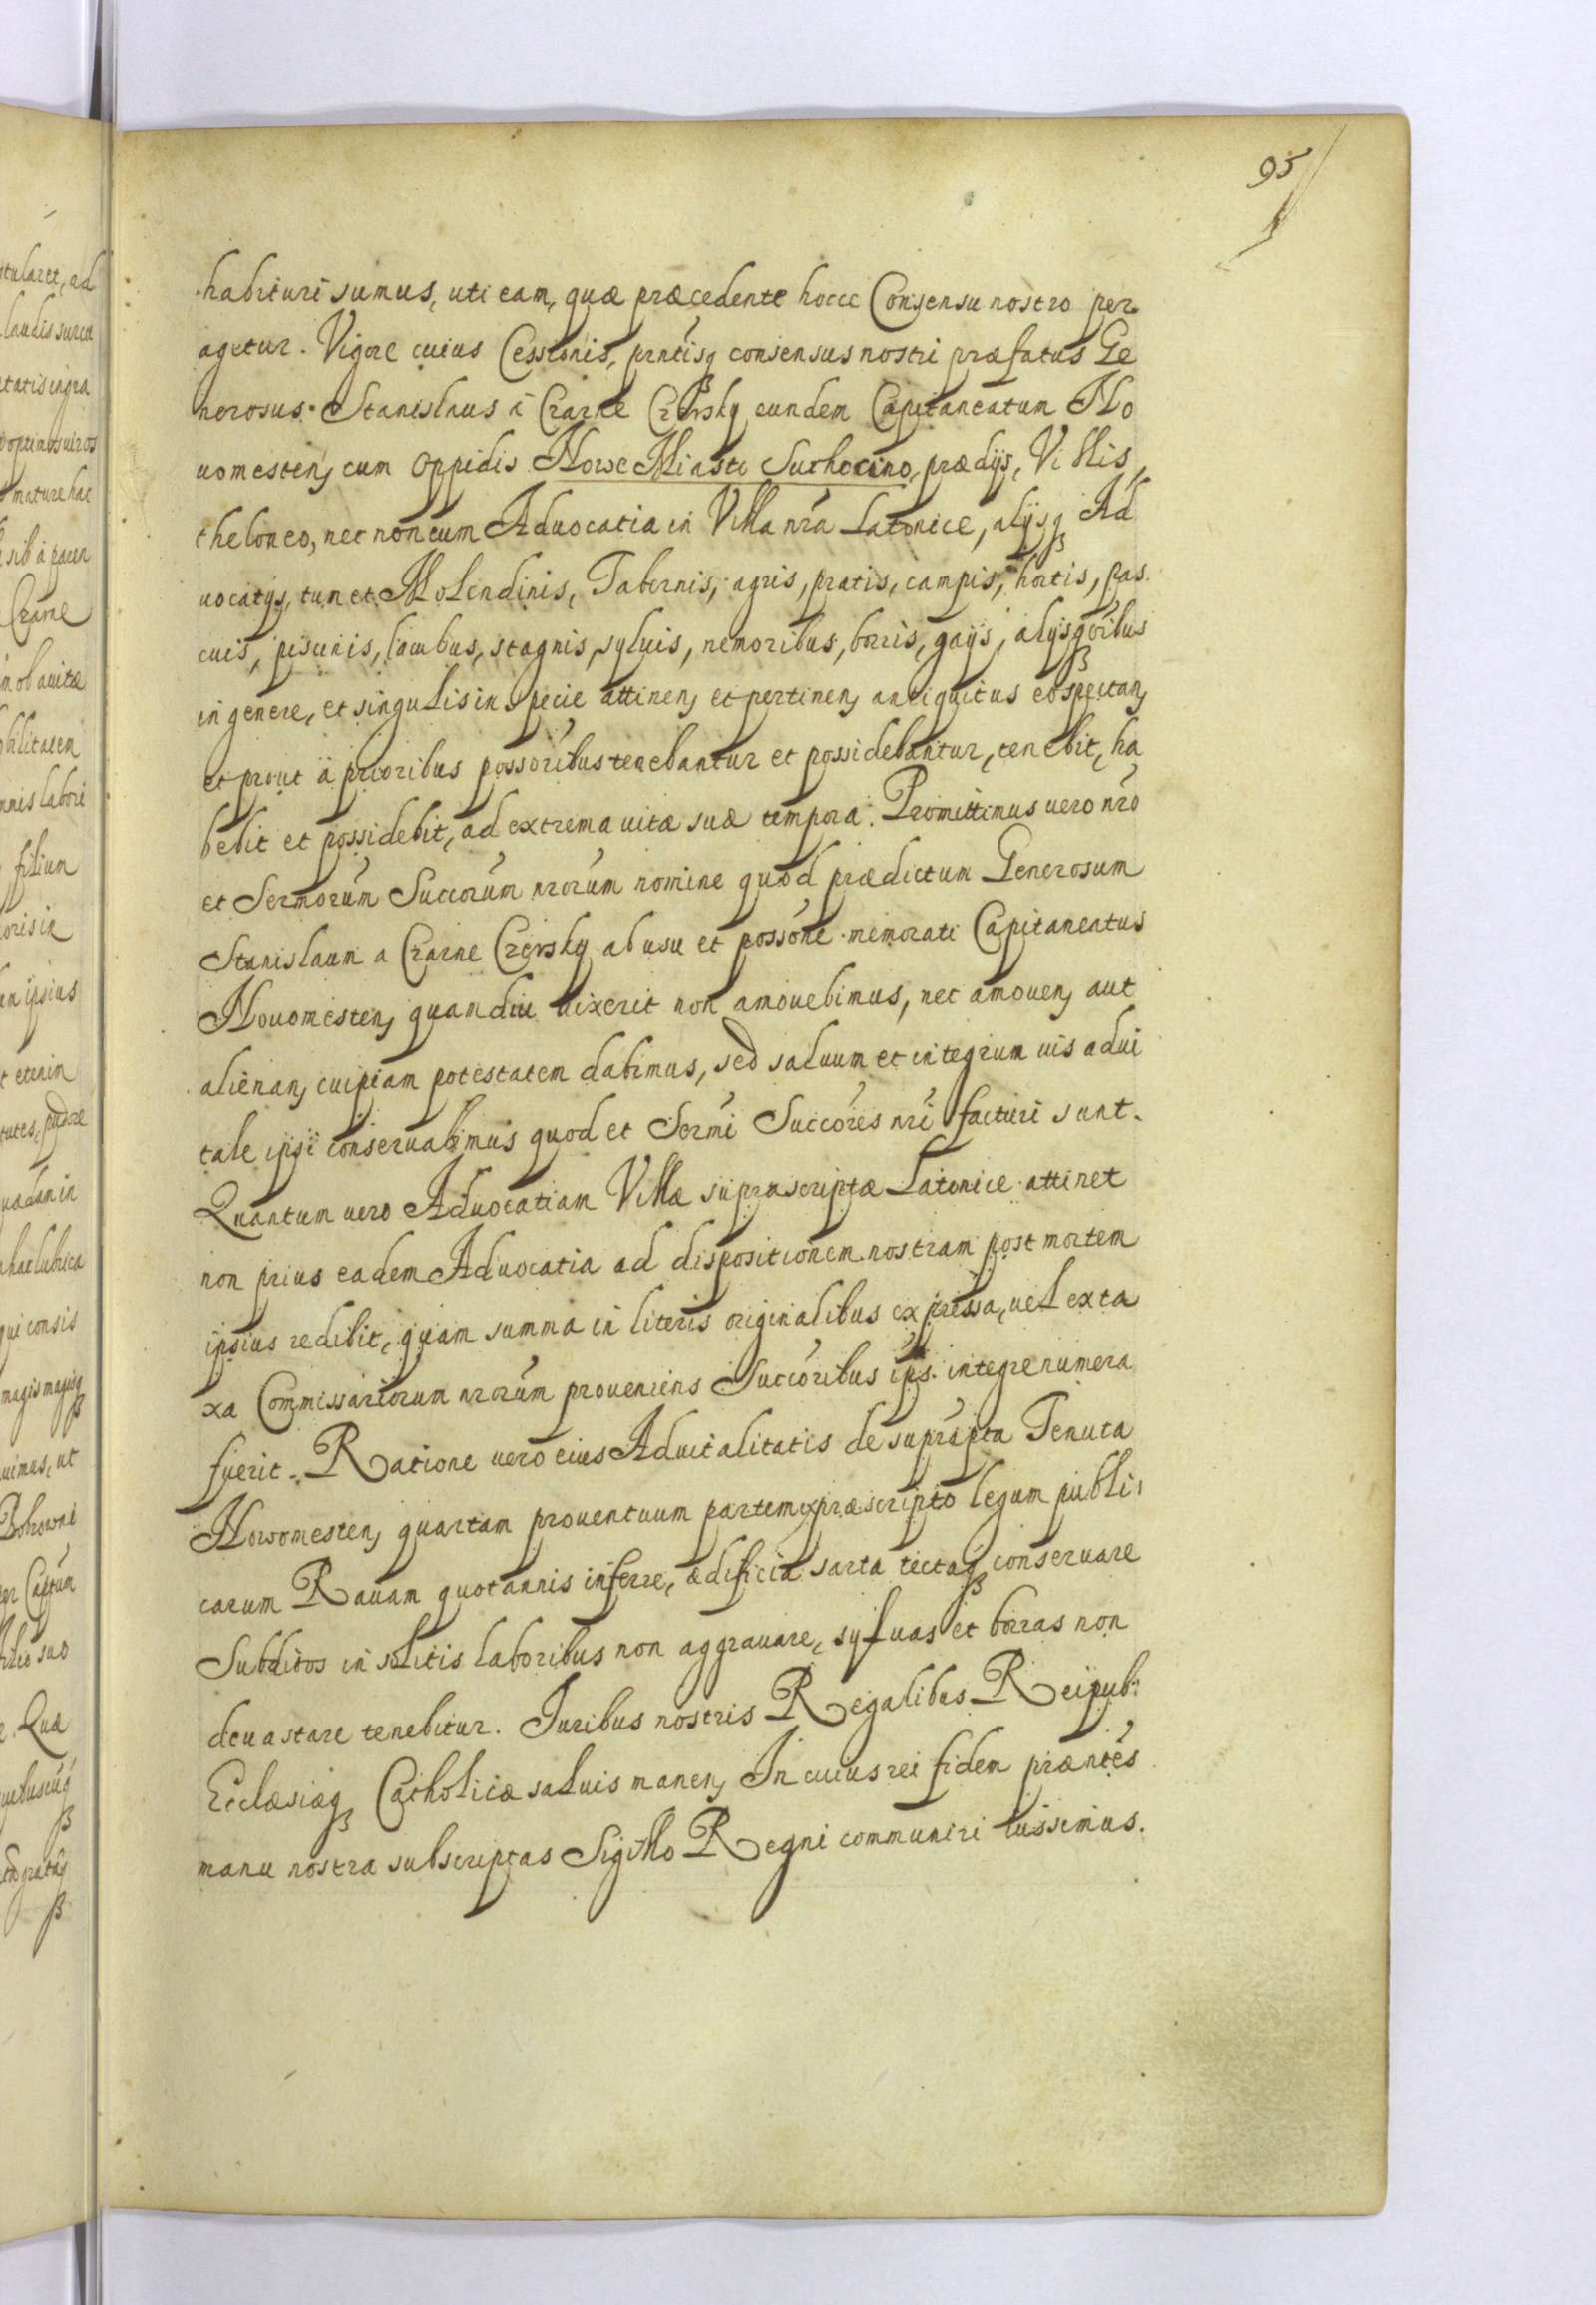 95
habituri sumus, uti eam, quæ præcedente hocce Consensu nostro per
agetur. Vigore cuius Cessionis, prntisq consensus nostri præfatus Ge
nerosus Stanislaus à Czarne Czerski eundem Capitaneatum No
uomesten, cum oppidis Nowe Miasto Suchocino, prædijs, Villis,
theloneo, nec non cum Aduocatia in Villa nrã Latonice, alijsq Ad
uocatijs, tum et Molendinis, Tabernis, agris, pratis, campis, hortis, pas
cuis, piscinis, lacubus, stagnis, syluis, nemoribus, borris, gaijs, alijsq õibus
in genere, et singulis in specie attinen, et pertinen, antiquitus eo spectan,
et prout à prioribus possõribus tenebantur et possidebantur, tenebit, ha
bebit et possidebit, ad extrema uitæ suæ tempora. Promittimus uero nrõ
et Sermorum Succorum nrorum nomine quod prædictum Generosum
Stanislaum a Czarne Czersky ab usu et possõne memorati Capitaneatus
Nouomesten, quamdiu uixerit non amouebimus, nec amouen, aut
alienan, cuipiam potestatem dabimus, sed saluum et integrum ius adui
tale ipsi conseruabimus quod et Sermi Succõres nri facturi sunt.
Quantum uero Aduocatiam Villæ suprascriptæ Latonice attinet
non prius eadem Aduocatia ad dispositionem nostram post mortem
ipsius redibit, quam summa in literis originalibus expressa, uel ex ta
xa Commissariorum nrorum proueniens Succõribus ips. integre numera
fuerit. Ratione uero eius Aduitalitatis de suprãpta Tenuta
Nowomesten, quartam prouentuum partem ex præscripto legum publi
carum Rauam quotannis inferre, ædificia sarta tectaq conseruare
Subditos insolitis laboribus non aggrauare, syluas et borras non
deuastare tenebitur. Iuribus nostris Regalibus Reipub:
Ecclæsiæq Catholicæ saluis manen, In cuius rei fidem præntes
manu nostra subscriptas Sigillo Regni communiri iussimus.